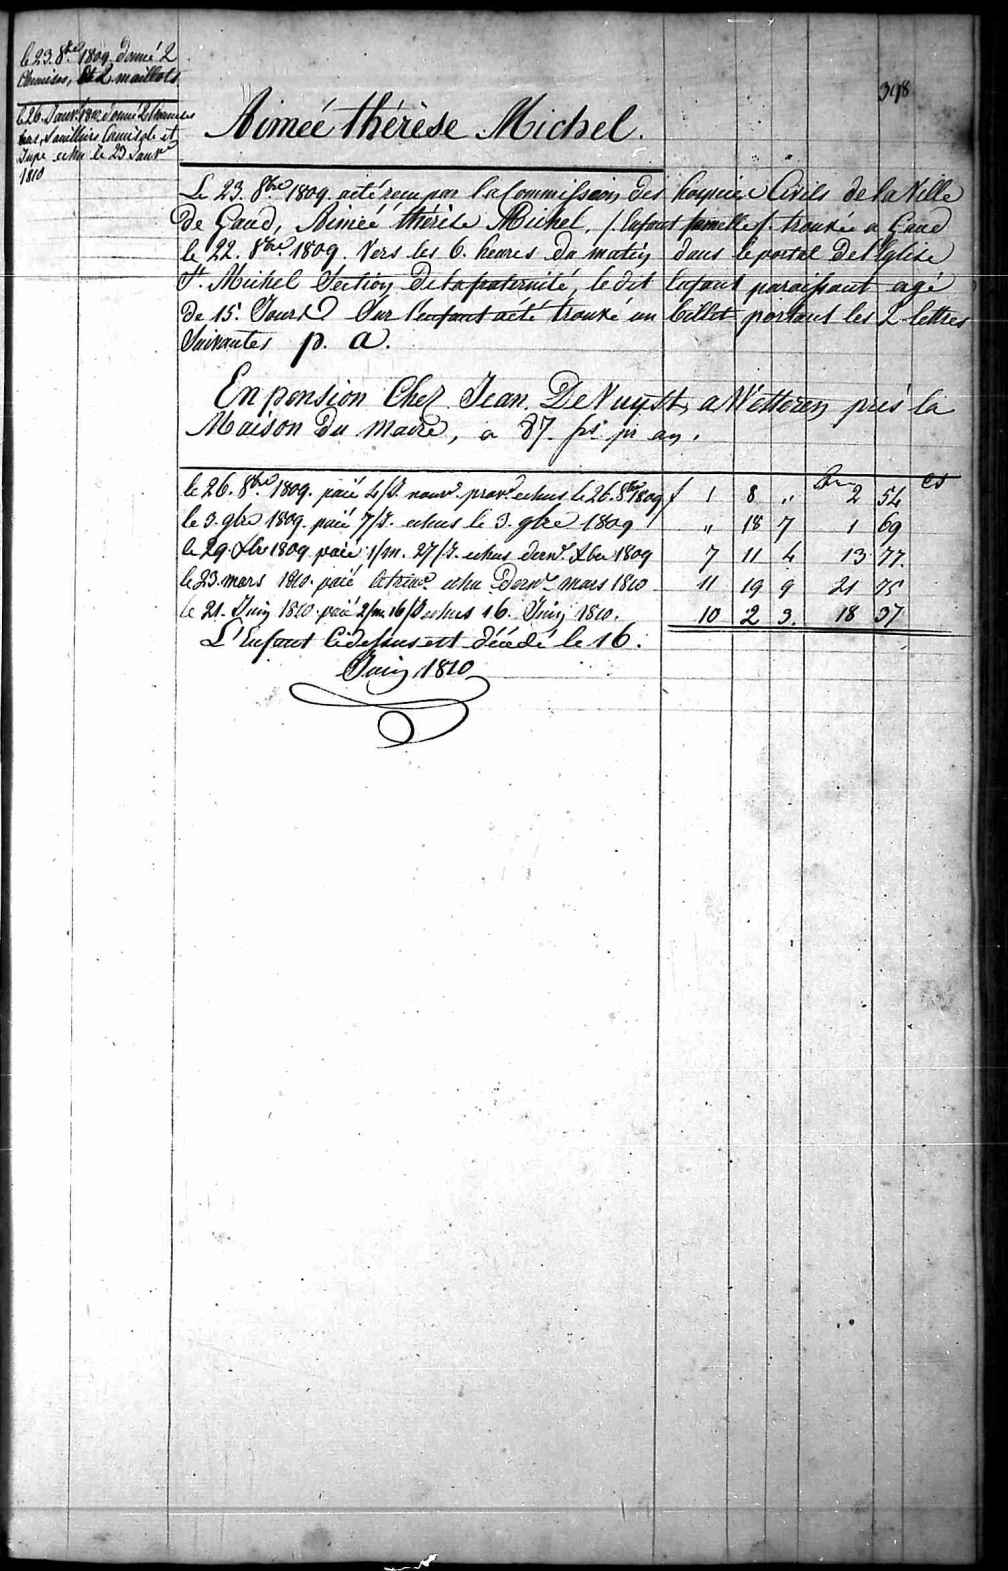 le 23. 8bre 1809. donné 2
Chemises, et 2 maillots
le 26. Janvr. 1810 donné 2 Chemises
bas, Souilliers Camisole et
Jupe echu le 23 Janvr
1810
398
Aimée thérèse Michel.
Le 23. 8bre 1809. a été reçu par la Commission des hospices Civils de la Ville
De Gand, Aimée thérèse Michel, /: Enfant femelle :/ trouvée a Gand
le 22. 8bre 1809. Vers les 6. heures du matin dans le portal De l'Eglise
St. Michel Section De la fraternité, le dit Enfant paraissant agé
De 15. Jours Sur l'enfant a été trouvé un billet portant les 2 lettres
Suivantes p. a.
En pension Chez Jean De Vuyst, a Wetteren près la
Maison Du Maire, a 87. frs. pr an.
le 26. 8bre 1809. paié 4/J. nourr. prov. echus le 26. 8bre 1809 f 1 8 " 2 54
le 3. 9bre 1809. paié 7/J. echus le 3. 9bre 1809 " 18 7 1 69
le 29. Xbre 1809 paié 1/m. 27/J. echus dernr. Xbre 1809 7 11 4 13 77.
le 23. mars 1810. paié le trimr. echu Dernr. mars 1810 11 19 9 21 75
le 21. Juin 1810. paié 2/m. 16/J echus 16. Juin 1810. 10 2 3. 18 37
L'Enfant Cidessus est décédé le 16.
Juin 1810